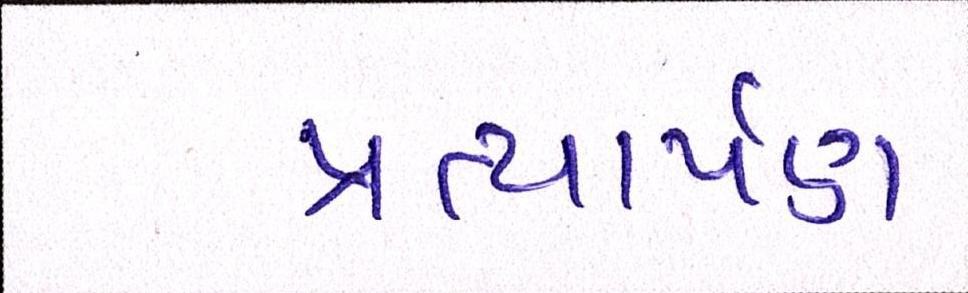 પ્રત્યાર્પણ